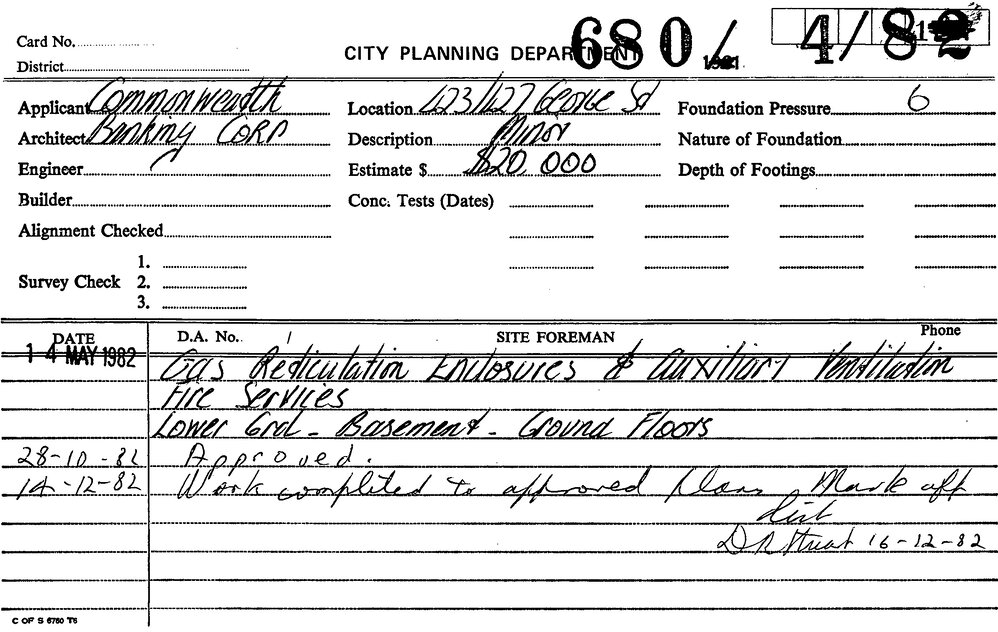 Card No.
District
CITY PLANNING DEPARTMENT 680/ 4/82
Applicant Commonwealth Location 423/427 George St Foundation Pressure 6
Architect Banking Corp Description Minor Nature of Foundation
Engineer Estimate $ $20,000 Depth of Footings
Builder Conc. Tests (Dates)
Alignment Checked
1.
Survey Check 2.
3.
DATE D.A. No. / SITE FOREMAN Phone
14 MAY 1982 Gas Rediculation Enclosures & Auxiliary Ventilation
Fire Services
Lower Grd - Basement - Ground Floors
28-10-82 Approved.
14-12-82 Work completed to approved plans Mark off
list
16-12-82
C OF S 6750 T6